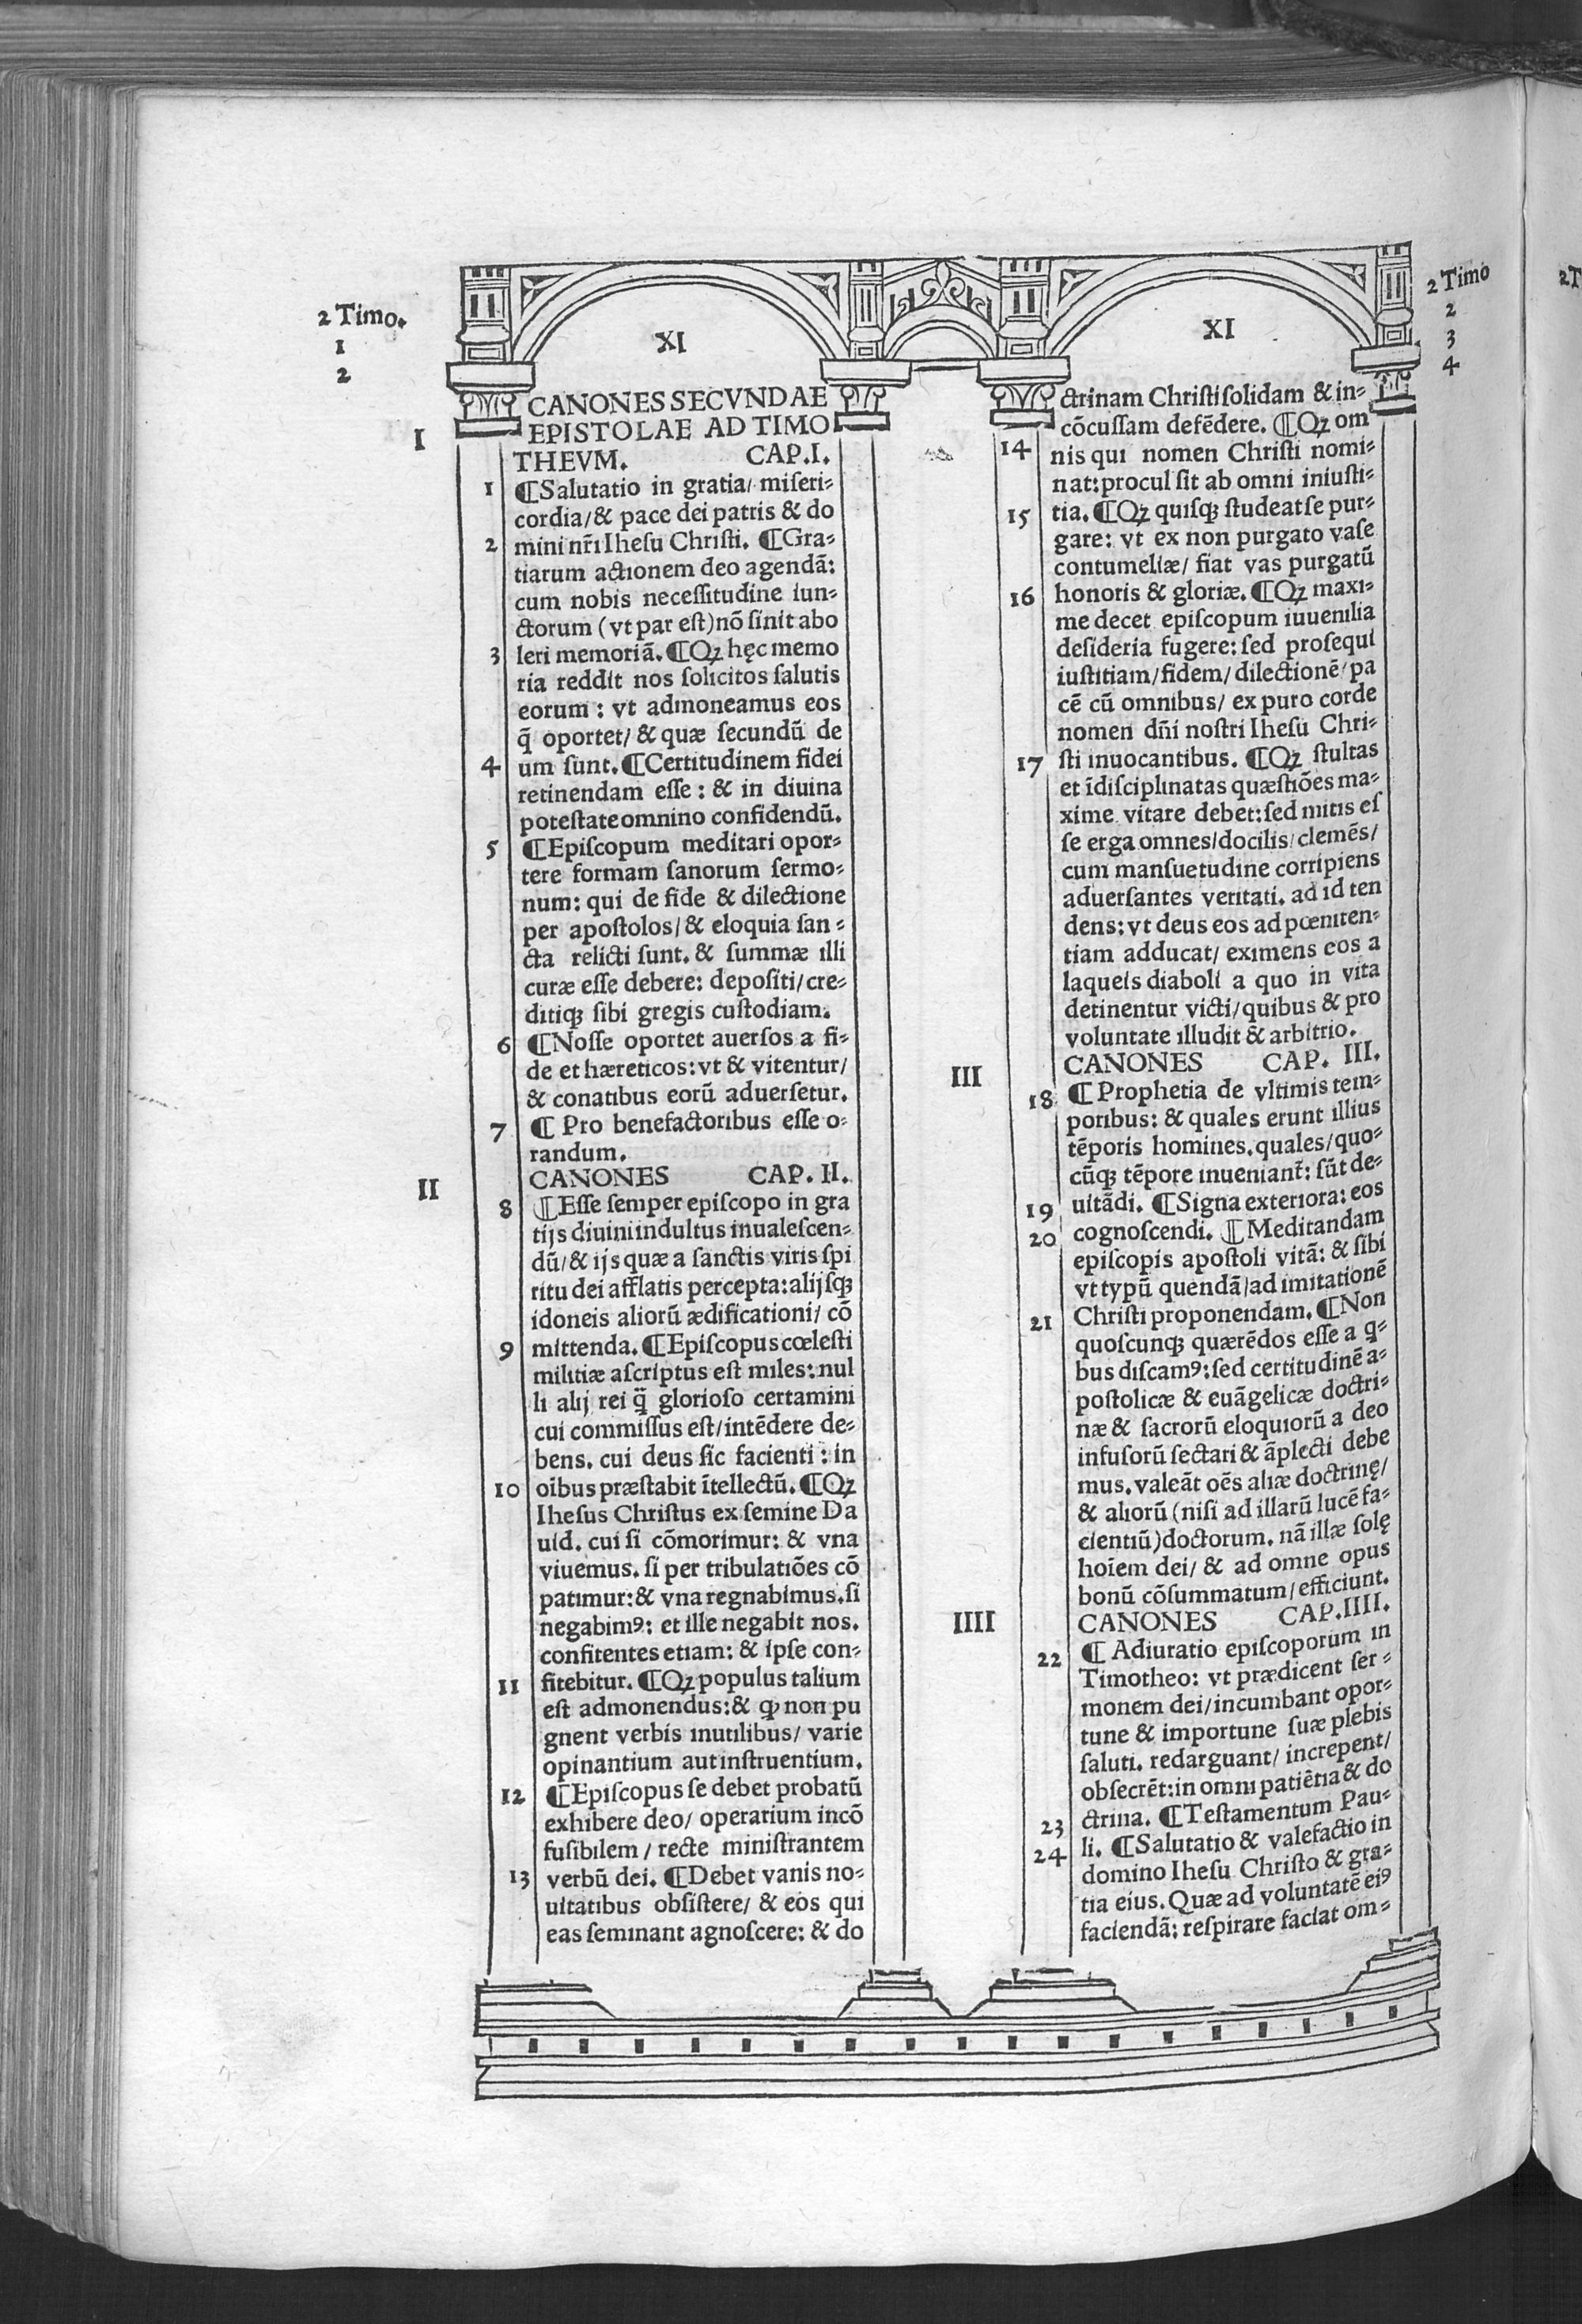 2 Timo.
1
2
XI
I
CANONES SECVNDAE
EPISTOLAE AD TIMO
THEVM. CAP.I.
1 ¶Salutatio in gratia/ miseri-
cordia/& pace dei patris & do
2 mini nr̃i Ihesu Christi. ¶Gra-
tiarum actionem deo agendã:
cum nobis necessitudine iun-
ctorum (vt par est) nõ sinit abo
3 leri memoriã. ¶Qꝫ hęc memo
ria reddit nos solicitos salutis
eorum : vt admoneamus eos
q̃ oportet/ & quæ secundũ de
4 um sunt. ¶Certitudinem fidei
retinendam esse : & in diuina
potestate omnino confidendũ.
5 ¶Episcopum meditari opor-
tere formam sanorum sermo-
num: qui de fide & dilectione
per apostolos/ & eloquia san-
cta relicti sunt. & summæ illi
curæ esse debere: depositi/ cre-
ditiqꝫ sibi gregis custodiam.
6 ¶Nosse oportet auersos a fi-
de et hæreticos: vt & vitentur/
& conatibus eorũ aduersetur.
7 ¶ Pro benefactoribus esse o-
randum.
II
CANONES CAP. II.
8 ¶Esse semper episcopo in gra
tijs diuini indultus inualescen-
dũ/ & ijs quæ a sanctis viris spi
ritu dei afflatis percepta: alijsqꝫ
idoneis aliorũ ædificationi/ cõ
9 mittenda. ¶Episcopus cœlesti
militiæ ascriptus est miles: nul
li alij rei q̃ glorioso certamini
cui commissus est/ intẽdere de-
bens. cui deus sic facienti : in
10 oĩbus præstabit ĩtellectũ. ¶Qꝫ
Ihesus Christus ex semine Da
uid. cui si cõmorimur: & vna
viuemus. si per tribulatiões cõ
patimur: & vna regnabimus. si
negabimꝰ: et ille negabit nos.
confitentes etiam: & ipse con-
11 fitebitur. ¶Qꝫ populus talium
est admonendus: & ꝙ non pu
gnent verbis inutilibus/ varie
opinantium aut instruentium.
12 ¶Episcopus se debet probatũ
exhibere deo/ operarium incõ
fusibilem / recte ministrantem
13 verbũ dei. ¶Debet vanis no-
uitatibus obsistere/ & eos qui
eas seminant agnoscere: & do
2 Timo
2
3
4
XI
ctrinam Christi solidam & in-
cõcussam defẽdere. ¶Qꝫ om
14 nis qui nomen Christi nomi-
nat: procul sit ab omni iniusti-
15 tia. ¶Qꝫ quisqꝫ studeat se pur-
gare: vt ex non purgato vase
contumeliæ/ fiat vas purgatũ
16 honoris & gloriæ. ¶Qꝫ maxi-
me decet episcopum iuuenilia
desideria fugere: sed prosequi
iustitiam/ fidem/ dilectionẽ/ pa
cẽ cũ omnibus/ ex puro corde
nomen dñi nostri Ihesu Chri-
17 sti inuocantibus. ¶Qꝫ stultas
et ĩdisciplinatas quæstiões ma-
xime vitare debet: sed mitis es
se erga omnes/ docilis/ clemẽs/
cum mansuetudine corripiens
aduersantes veritati. ad id ten
dens: vt deus eos ad pœniten-
tiam adducat/ eximens eos a
laqueis diaboli a quo in vita
detinentur victi/ quibus & pro
voluntate illudit & arbitrio.
III
CANONES CAP. III.
18 ¶Prophetia de vltimis tem-
poribus: & quales erunt illius
tẽporis homines. quales/ quo-
cũqꝫ tẽpore inueniant̃: sũt de-
19 uitãdi. ¶Signa exteriora: eos
20 cognoscendi. ¶Meditandam
episcopis apostoli vitã: & sibi
vt typũ quendã/ ad imitationẽ
21 Christi proponendam. ¶Non
quoscunqꝫ quærẽdos esse a q̃-
bus discamꝰ: sed certitudinẽ a-
postolicæ & euãgelicæ doctri-
næ & sacrorũ eloquiorũ a deo
infusorũ sectari & ãplecti debe
mus. valeãt oẽs aliæ doctrinę/
& aliorũ (nisi ad illarũ lucẽ fa-
cientiũ) doctorum. nã illæ solę
hoĩem dei/ & ad omne opus
bonũ cõsummatum/ efficiunt.
IIII
CANONES CAP.IIII.
22 ¶ Adiuratio episcoporum in
Timotheo: vt prædicent ser-
monem dei/ incumbant opor-
tune & importune suæ plebis
saluti. redarguant/ increpent/
obsecrẽt: in omni patiẽtia & do
23 ctrina. ¶Testamentum Pau-
24 li. ¶Salutatio & valefactio in
domino Ihesu Christo & gra-
tia eius. Quæ ad voluntatẽ eiꝰ
faciendã: respirare faciat om-